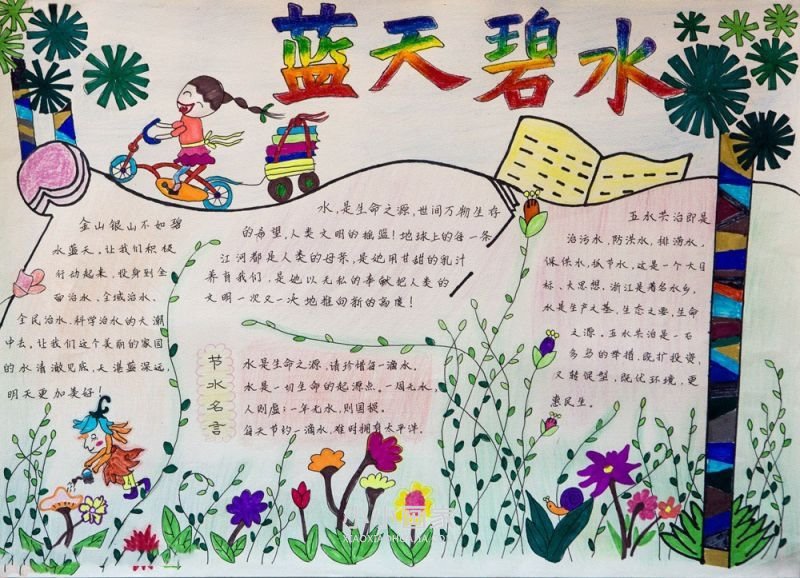 蓝天碧水
金山银山不如碧
水蓝天,让我们积极
行动起来,投身到全
面治水、全域治水、
全民治水、科学治水的大潮
中去,让我们这个美丽的家园
的水清澈见底,天湛蓝深远
明天更加美好!
水,是生命之源,世间万物生存
的希望,人类文明的摇篮!地球上的每一条
江河都是人类的母亲,是她用甘甜的乳汁
养育我们,是她以无私的奉献把人类的
文明一次又一次地推向新的高度!
节水名言
水是生命之源,请珍惜每一滴水。
水是一切生命的起源点,一周无水,
人则虚;一年无水,则国损。
每天节约一滴水,难时拥有太平洋。
五水共治即是
治污水、防洪水,排涝水,
保供水,抓节水,这是一个大目
标、大思想,浙江是著名水乡,
水是生产之基,生态之要,生命
之源,五水共治是一石
多鸟的举措,既扩投资,
又转促型,既优环境,更
惠民生。
XIAOXIAOHUAJIA.COM